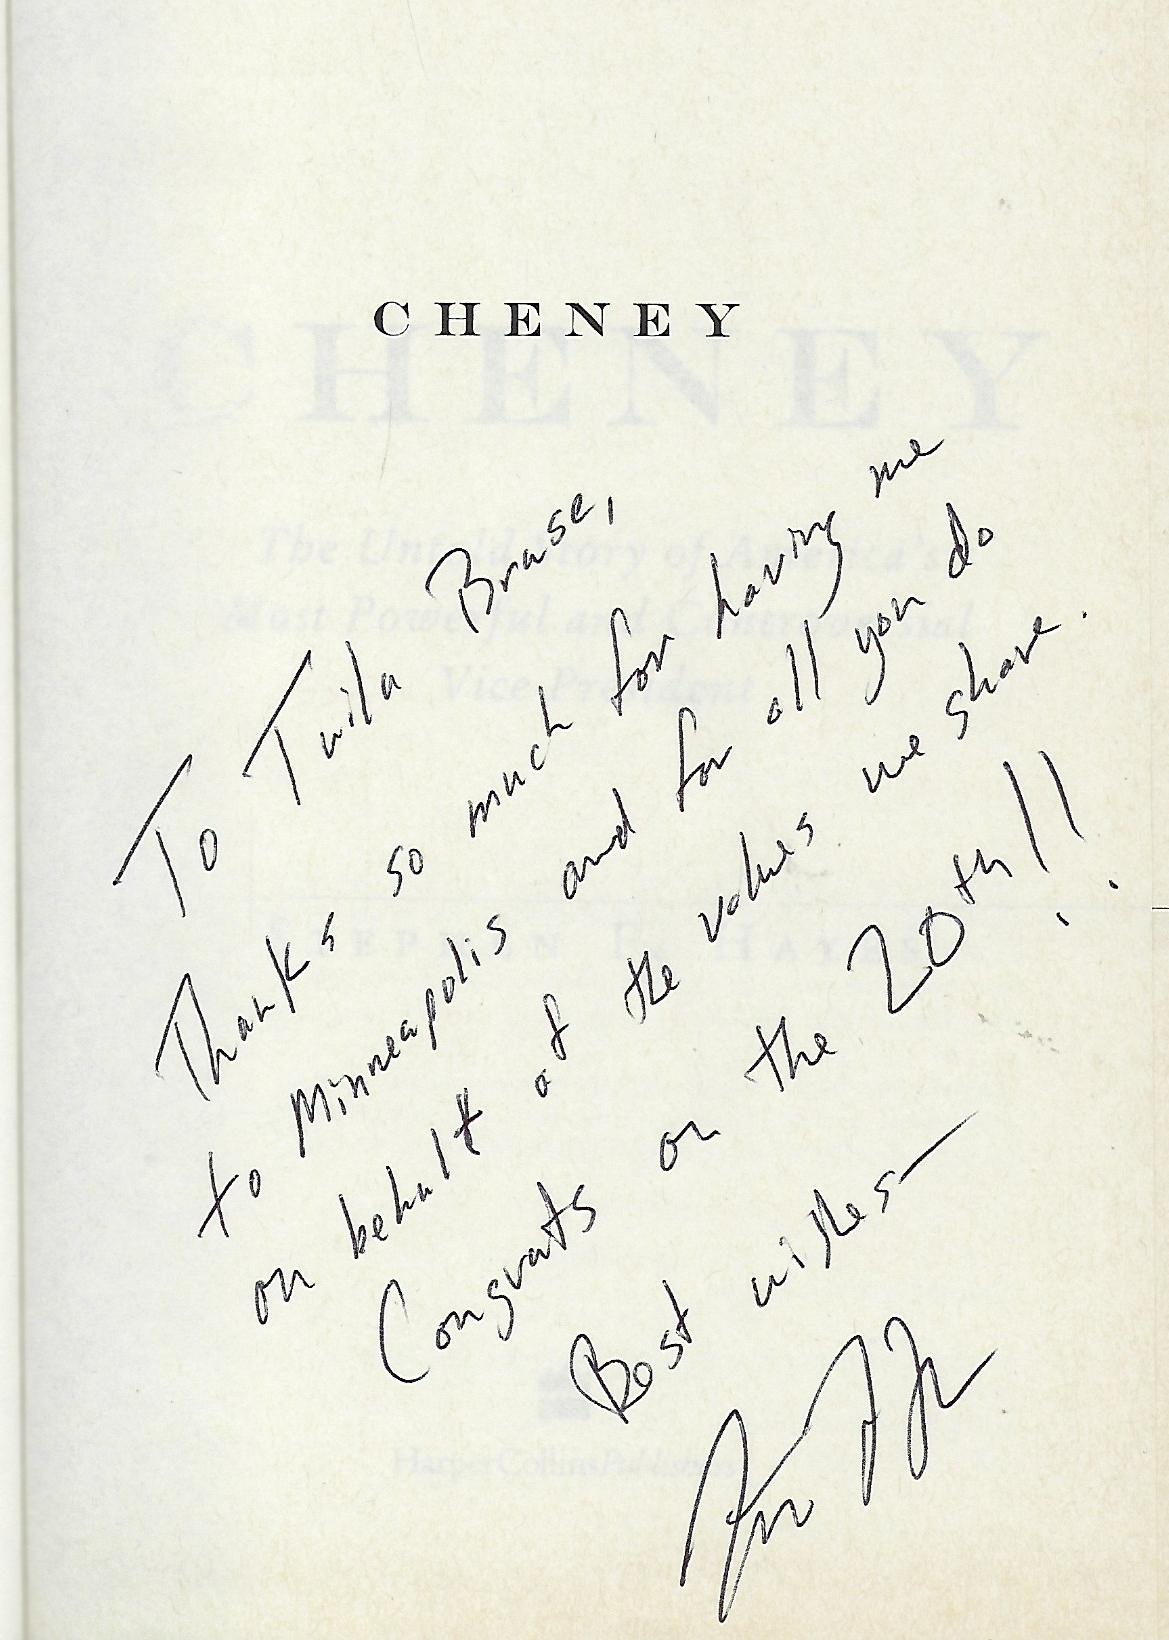 CHENEY
To Twila Brase,
Thanks so much for having me
to Minneapolis and for all you do
on behalf of the values we share.
Congrats on the 20th!!
Best wishes—
CHENEY
The Untold Story of America's
Most Powerful and Controversial
Vice President
STEPHEN F. HAYES
HarperCollinsPublishers